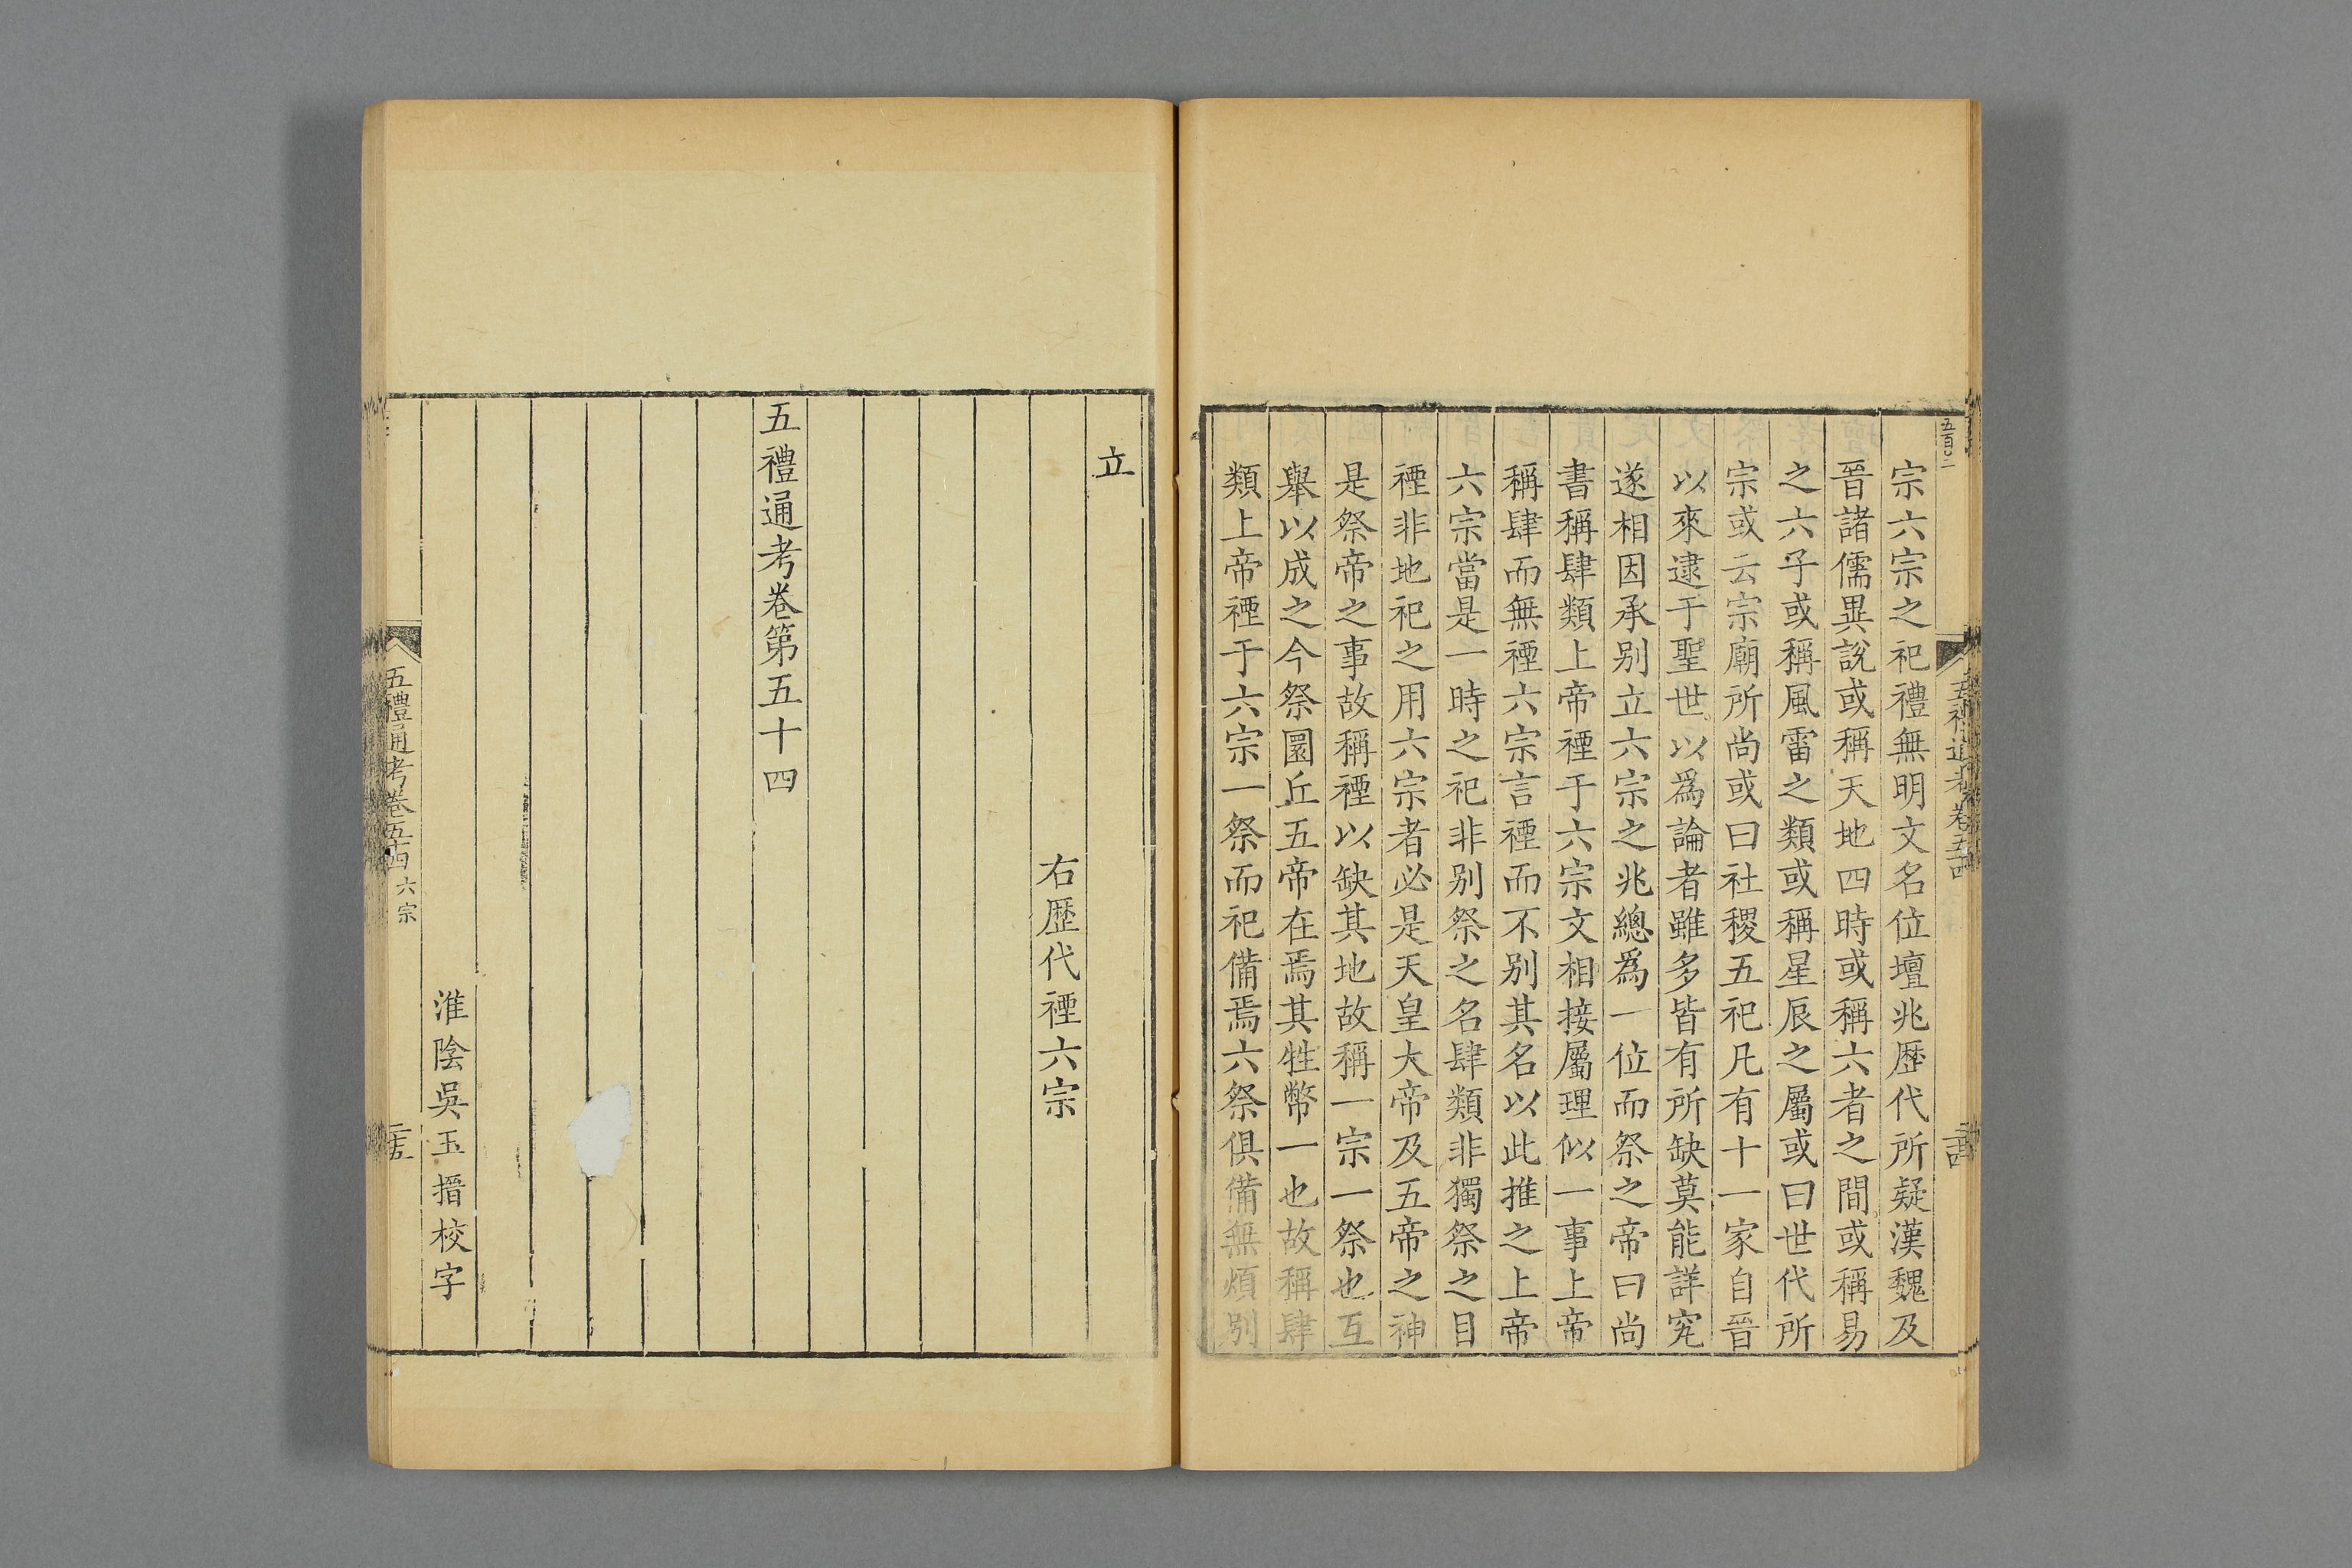 五百〇二
五禮通考卷五十四
宗六宗之祀禮無明文名位壇兆歷代所疑漢魏及
晉諸儒異說或稱天地四時或稱六者之間或稱易
之六子或稱風雷之類或稱星辰之屬或曰世代所
宗或云宗廟所尚或曰社稷五祀凡有十一家自晉
以來逮于聖世以爲論者雖多皆有所缺莫能詳究
遂相因承别立六宗之兆總爲一位而祭之帝曰尚
書稱肆類上帝禋于六宗文相接屬理似一事上帝
稱肆而無禋六宗言禋而不别其名以此推之上帝
六宗當是一時之祀非别祭之名肆類非獨祭之目
禋非地祀之用六宗者必是天皇大帝及五帝之神
是祭帝之事故稱禋以缺其地故稱一宗一祭也互
舉以成之今祭圜丘五帝在焉其牲幣一也故稱肆
類上帝禋于六宗一祭而祀備焉六祭俱備無煩别
立
右歷代禋六宗
五禮通考卷第五十四
淮陰吳玉搢校字
五禮通考卷五十四 六宗
二十五